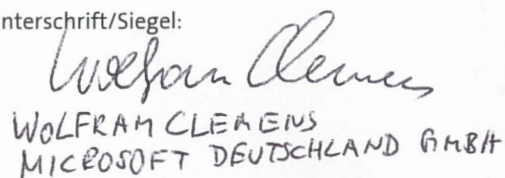 nterschrift/Siegel:
Wolfram Clemens
WOLFRAM CLEMENS
MICROSOFT DEUTSCHLAND GMBH